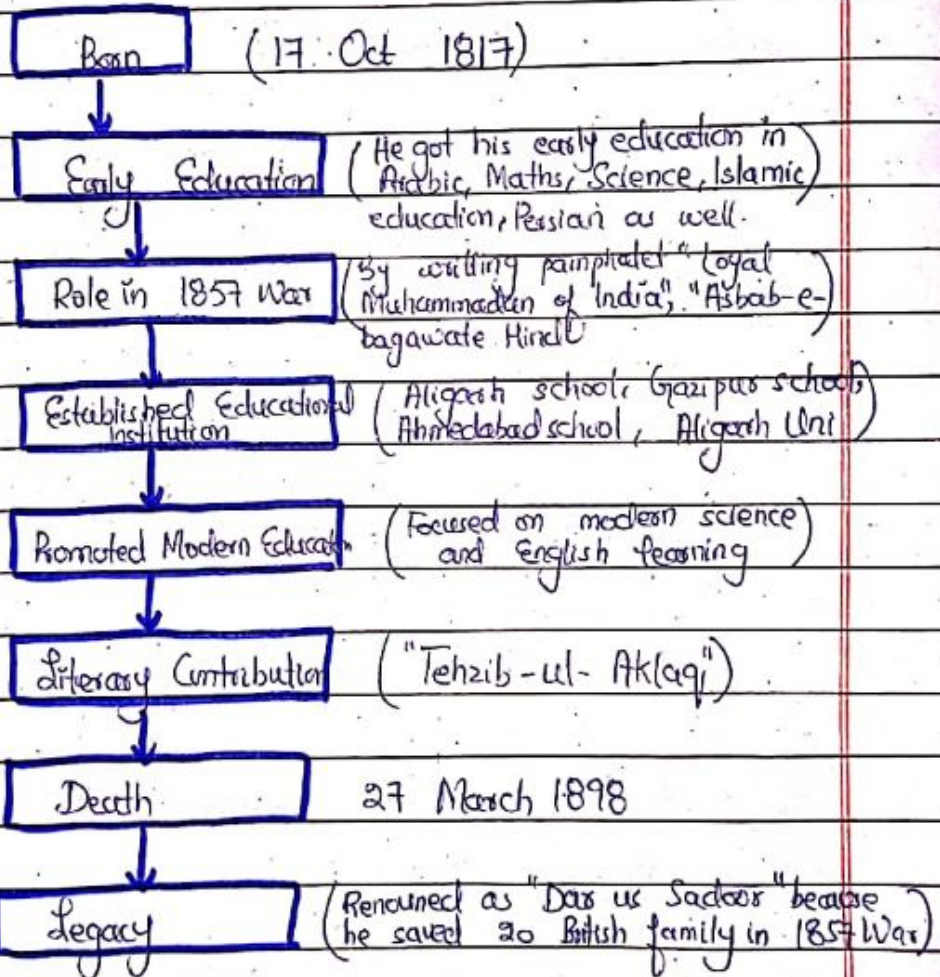 Born (17 Oct 1817)
Early Education (He got his early education in
Arabic, Maths, Science, Islamic)
education, Persian as well.
Role in 1857 War (By writing pamphalet "Loyal
Muhammadan of India", "Asbab-e-)
bagawate Hind"
Established Educational (Aligarh school, Gazipur school,
Institution Ahmedabad school, Aligarh Uni)
Promoted Modern Educatn (Focused on modern science
and English learning)
Literary Contribution ("Tehzib-ul-Aklaq")
Death 27 March 1898
Legacy (Renouned as "Dar us Sadoor" because
he saved 20 British family in 1857 War)